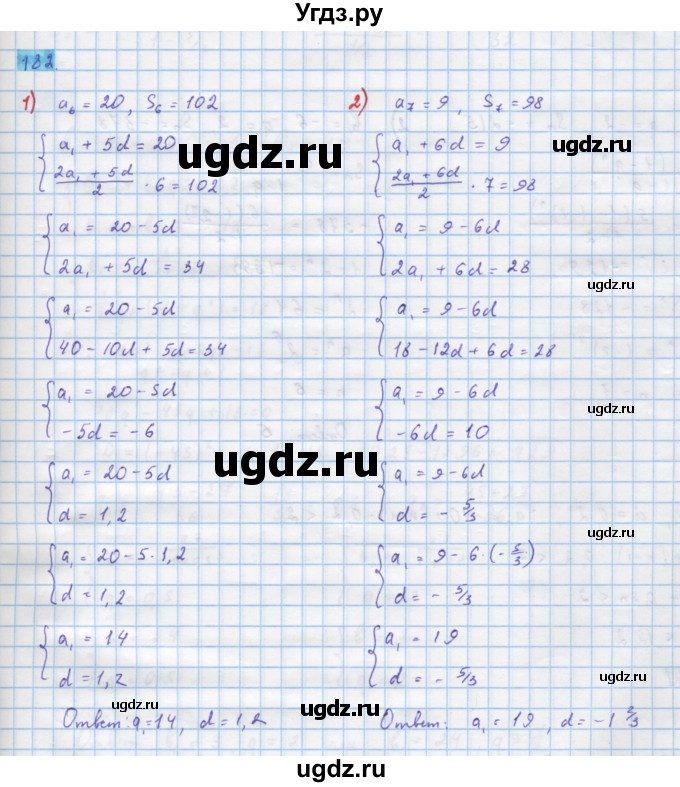 Угдз.ру
182.
1) a₆ = 20, S₆ = 102
{ a₁ + 5d = 20
(2a₁ + 5d)/2 · 6 = 102
{ a₁ = 20 - 5d
2a₁ + 5d = 34
{ a₁ = 20 - 5d
40 - 10d + 5d = 34
{ a₁ = 20 - 5d
- 5d = - 6
{ a₁ = 20 - 5d
d = 1,2
{ a₁ = 20 - 5 · 1,2
d = 1,2
{ a₁ = 14
d = 1,2
Ответ: a₁ = 14, d = 1,2
2) a₇ = 9, S₇ = 98
{ a₁ + 6d = 9
(2a₁ + 6d)/2 · 7 = 98
{ a₁ = 9 - 6d
2a₁ + 6d = 28
{ a₁ = 9 - 6d
18 - 12d + 6d = 28
{ a₁ = 9 - 6d
- 6d = 10
{ a₁ = 9 - 6d
d = - 5/3
{ a₁ = 9 - 6 · (- 5/3)
d = - 5/3
{ a₁ = 19
d = - 5/3
Ответ: a₁ = 19, d = -1 2/3
ugdz.ru
ugdz.ru
ugdz.ru
ugdz.ru
ugdz.ru
ugdz.ru
ugdz.ru
ugdz.ru
ugdz.ru
ugdz.ru